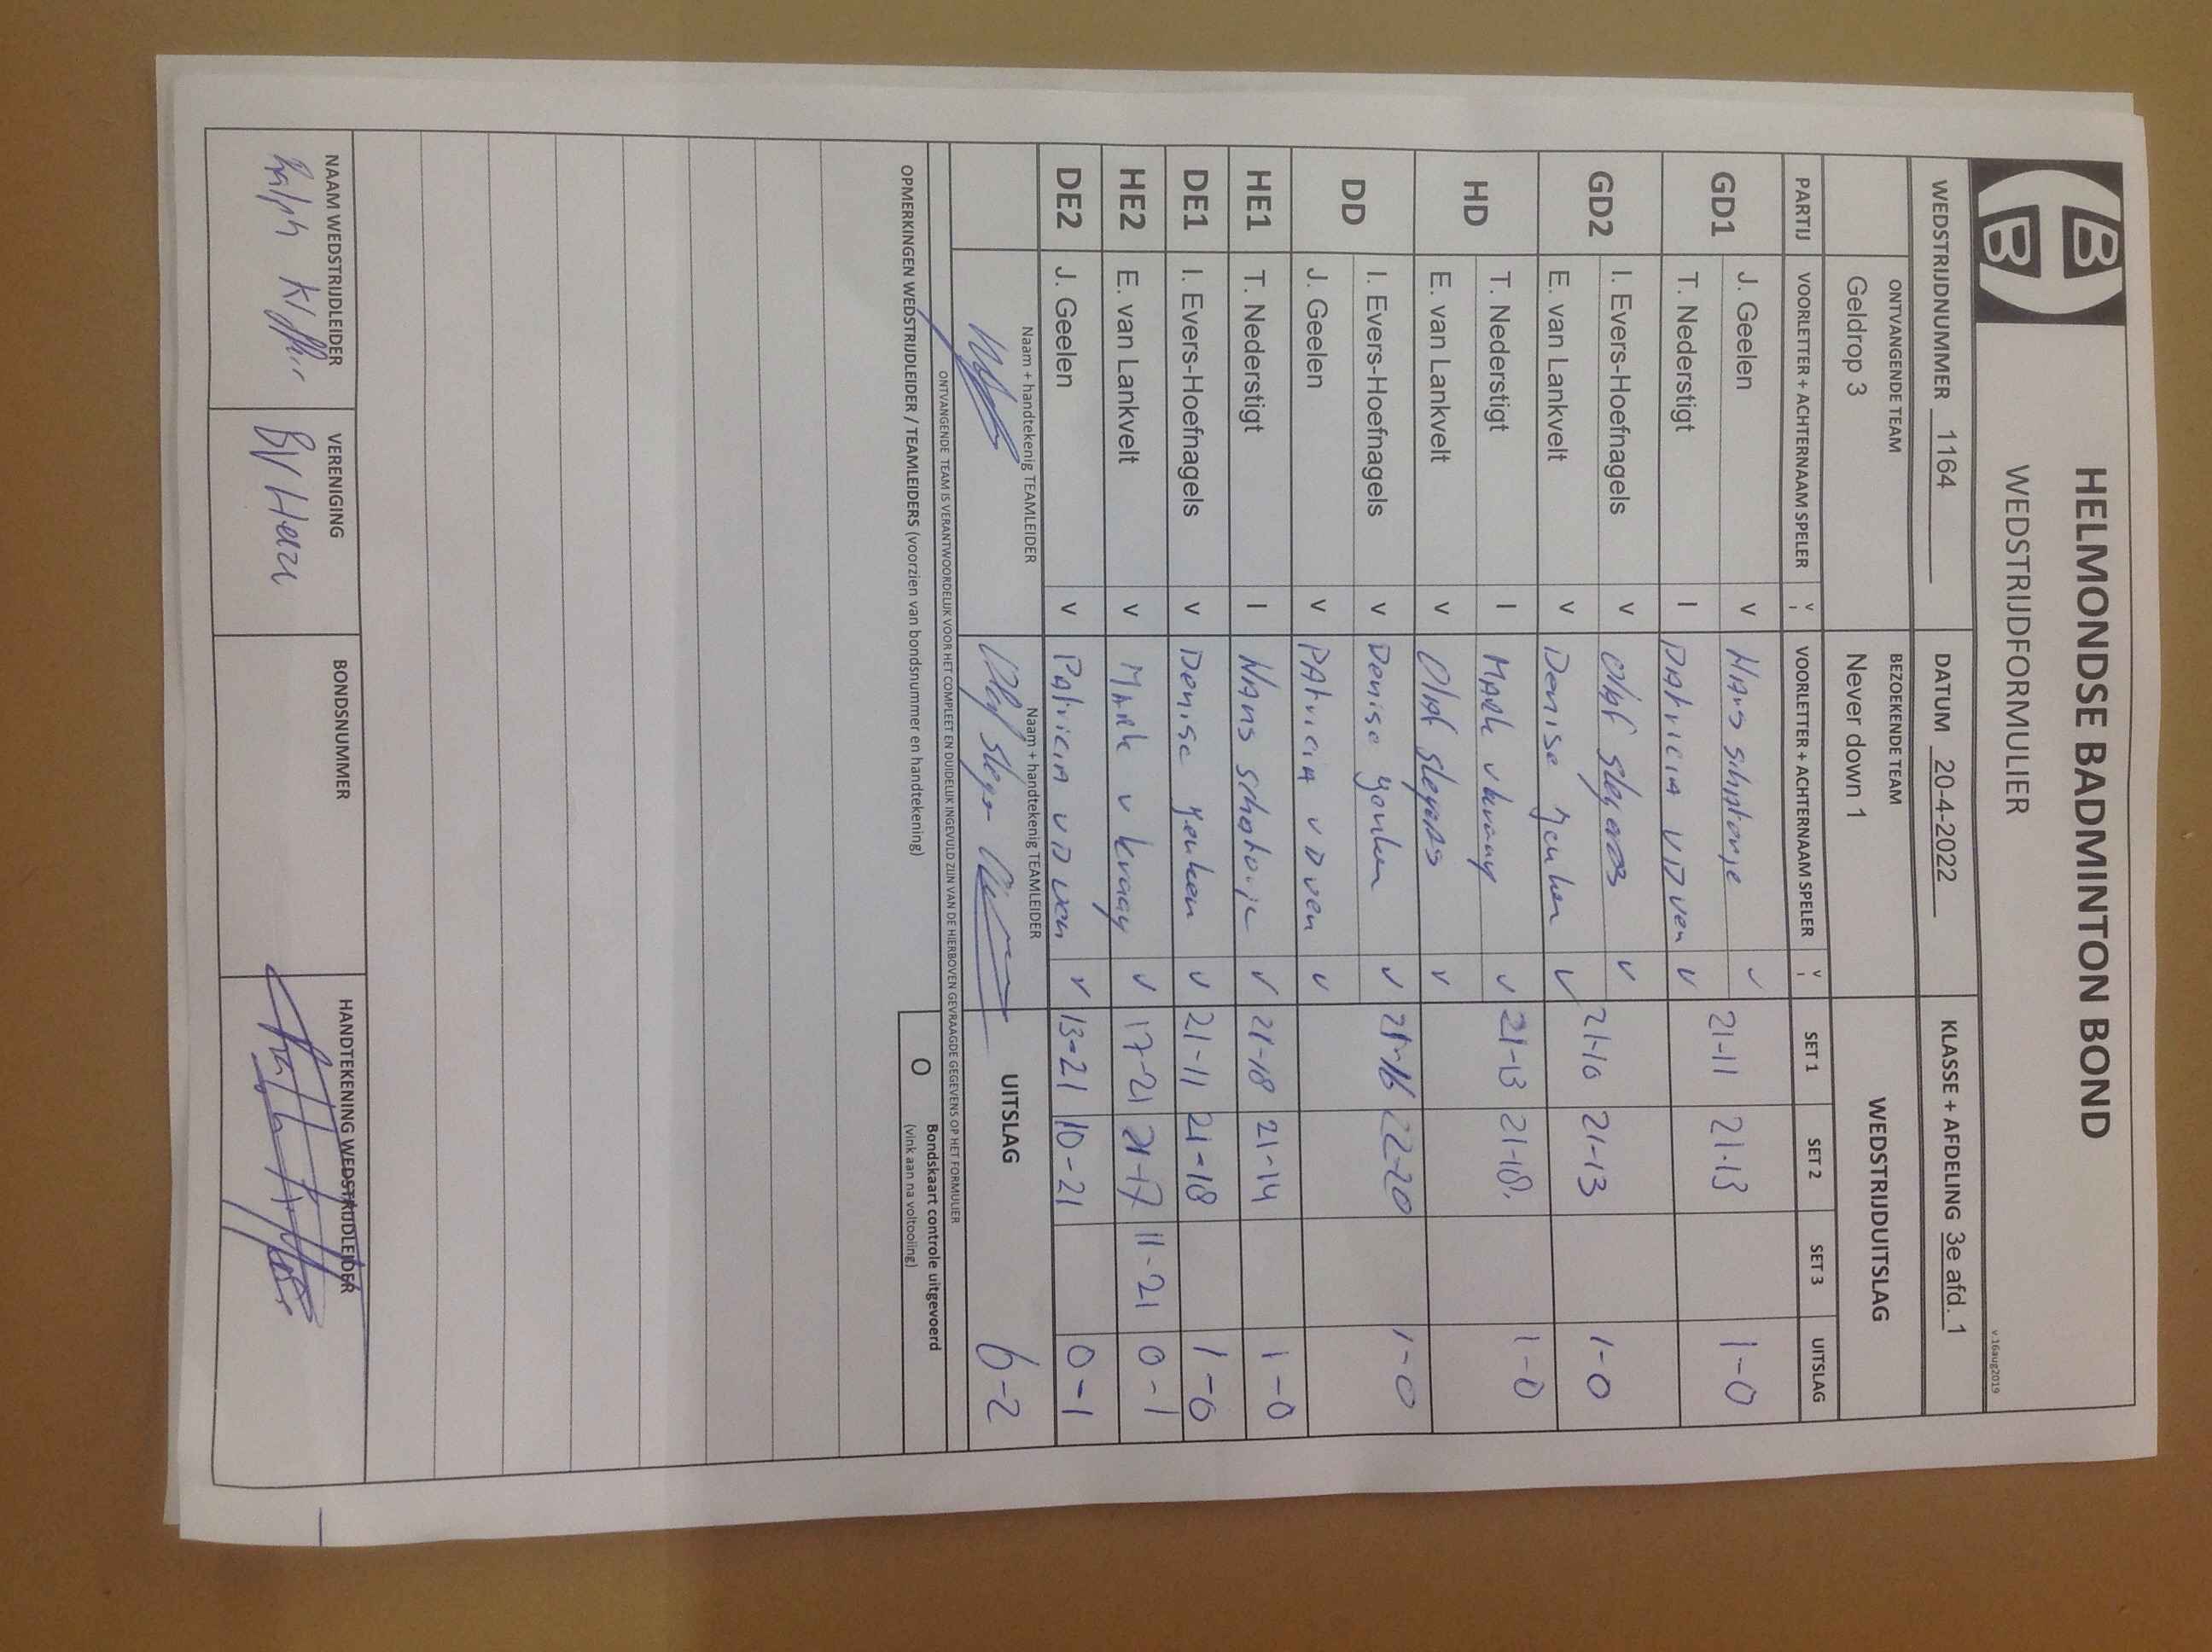 HELMONDSE BADMINTON BOND
WEDSTRIJDFORMULIER
v.16aug2019
WEDSTRIJDNUMMER 1164 DATUM 20-4-2022 KLASSE + AFDELING 3e afd. 1
ONTVANGENDE TEAM BEZOEKENDE TEAM WEDSTRIJDUITSLAG
Geldrop 3 Never down 1
PARTIJ VOORLETTER + ACHTERNAAM SPELER V I VOORLETTER + ACHTERNAAM SPELER V I SET 1 SET 2 SET 3 UITSLAG
GD1 J. Geelen v Hans v 21-11 21-13 1-0
T. Nederstigt I Patricia VD Ven v
GD2 I. Evers-Hoefnagels v Olaf Slegers v 21-10 21-13 1-0
E. van Lankvelt v Denise v
HD T. Nederstigt I Mark v 21-13 21-18. 1-0
E. van Lankvelt v Olaf Slegers v
DD I. Evers-Hoefnagels v Denise v 21-16 22-20 1-0
J. Geelen v Patricia v D ven v
HE1 T. Nederstigt I Hans v 21-18 21-14 1-0
DE1 I. Evers-Hoefnagels v Denise v 21-11 21-18 1-0
HE2 E. van Lankvelt v Mark v kraay v 17-21 21-17 11-21 0-1
DE2 J. Geelen v Patricia v D ven v 13-21 10-21 0-1
Naam + handtekenig TEAMLEIDER Naam + handtekenig TEAMLEIDER UITSLAG 6-2
ONTVANGENDE TEAM IS VERANTWOORDELIJK VOOR HET COMPLEET EN DUIDELIJK INGEVULD ZIJN VAN DE HIERBOVEN GEVRAAGDE GEGEVENS OP HET FORMULIER
OPMERKINGEN WEDSTRIJDLEIDER / TEAMLEIDERS (voorzien van bondsnummer en handtekening) O Bondskaart controle uitgevoerd
(vink aan na voltooiing)
NAAM WEDSTRIJDLEIDER VERENIGING BONDSNUMMER HANDTEKENING WEDSTRIJDLEIDER
Ralph BV Heeze